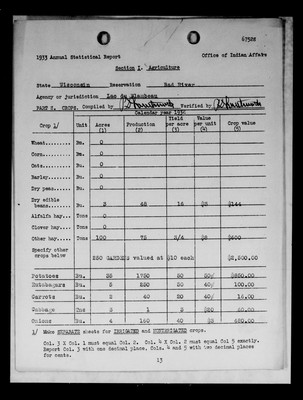 1933 Annual Statistical Report Office of Indian Affairs
Section I. Agriculture
State Wisconsin Reservation Bad River
Agency or jurisdiction Lac du Flambeau
PART E. CROPS. Compiled by Verified by
Calendar year 1932
Crop 1/ Unit Acres (1) Production (2) Yield per acre (3) Value per unit (4) Crop value (5)
Wheat..... Bu. 0
Corn...... Bu. 0
Oats...... Bu. 0
Barley.... Bu. 0
Dry peas.. Bu. 0
Dry edible
beans..... Bu. 3 48 16 $3 $144
Alfalfa hay. Tons 0
Clover hay.. Tons 0
Other hay... Tons 100 75 3/4 $8 $600
Specify other
crops below
250 GARDENS valued at $10 each $2,500.00
Potatoes Bu. 35 1750 50 50¢
Rutabagars Bu. 5 250 50 40¢ 100.00
Carrots Bu. 2 40 20 40¢ 16.00
Cabbage Ton 1
Onions Bu. 4 160 40
1/ Make SEPARATE sheets for IRRIGATED and NONIRRIGATED crops.
Col. 3 X Col. 1 must equal Col. 2. Col. 4 X Col. 2 must equal Col 5 exactly.
Report Col. 3 with one decimal place, Cols. 4 and 5 with two decimal places
for cents.
13